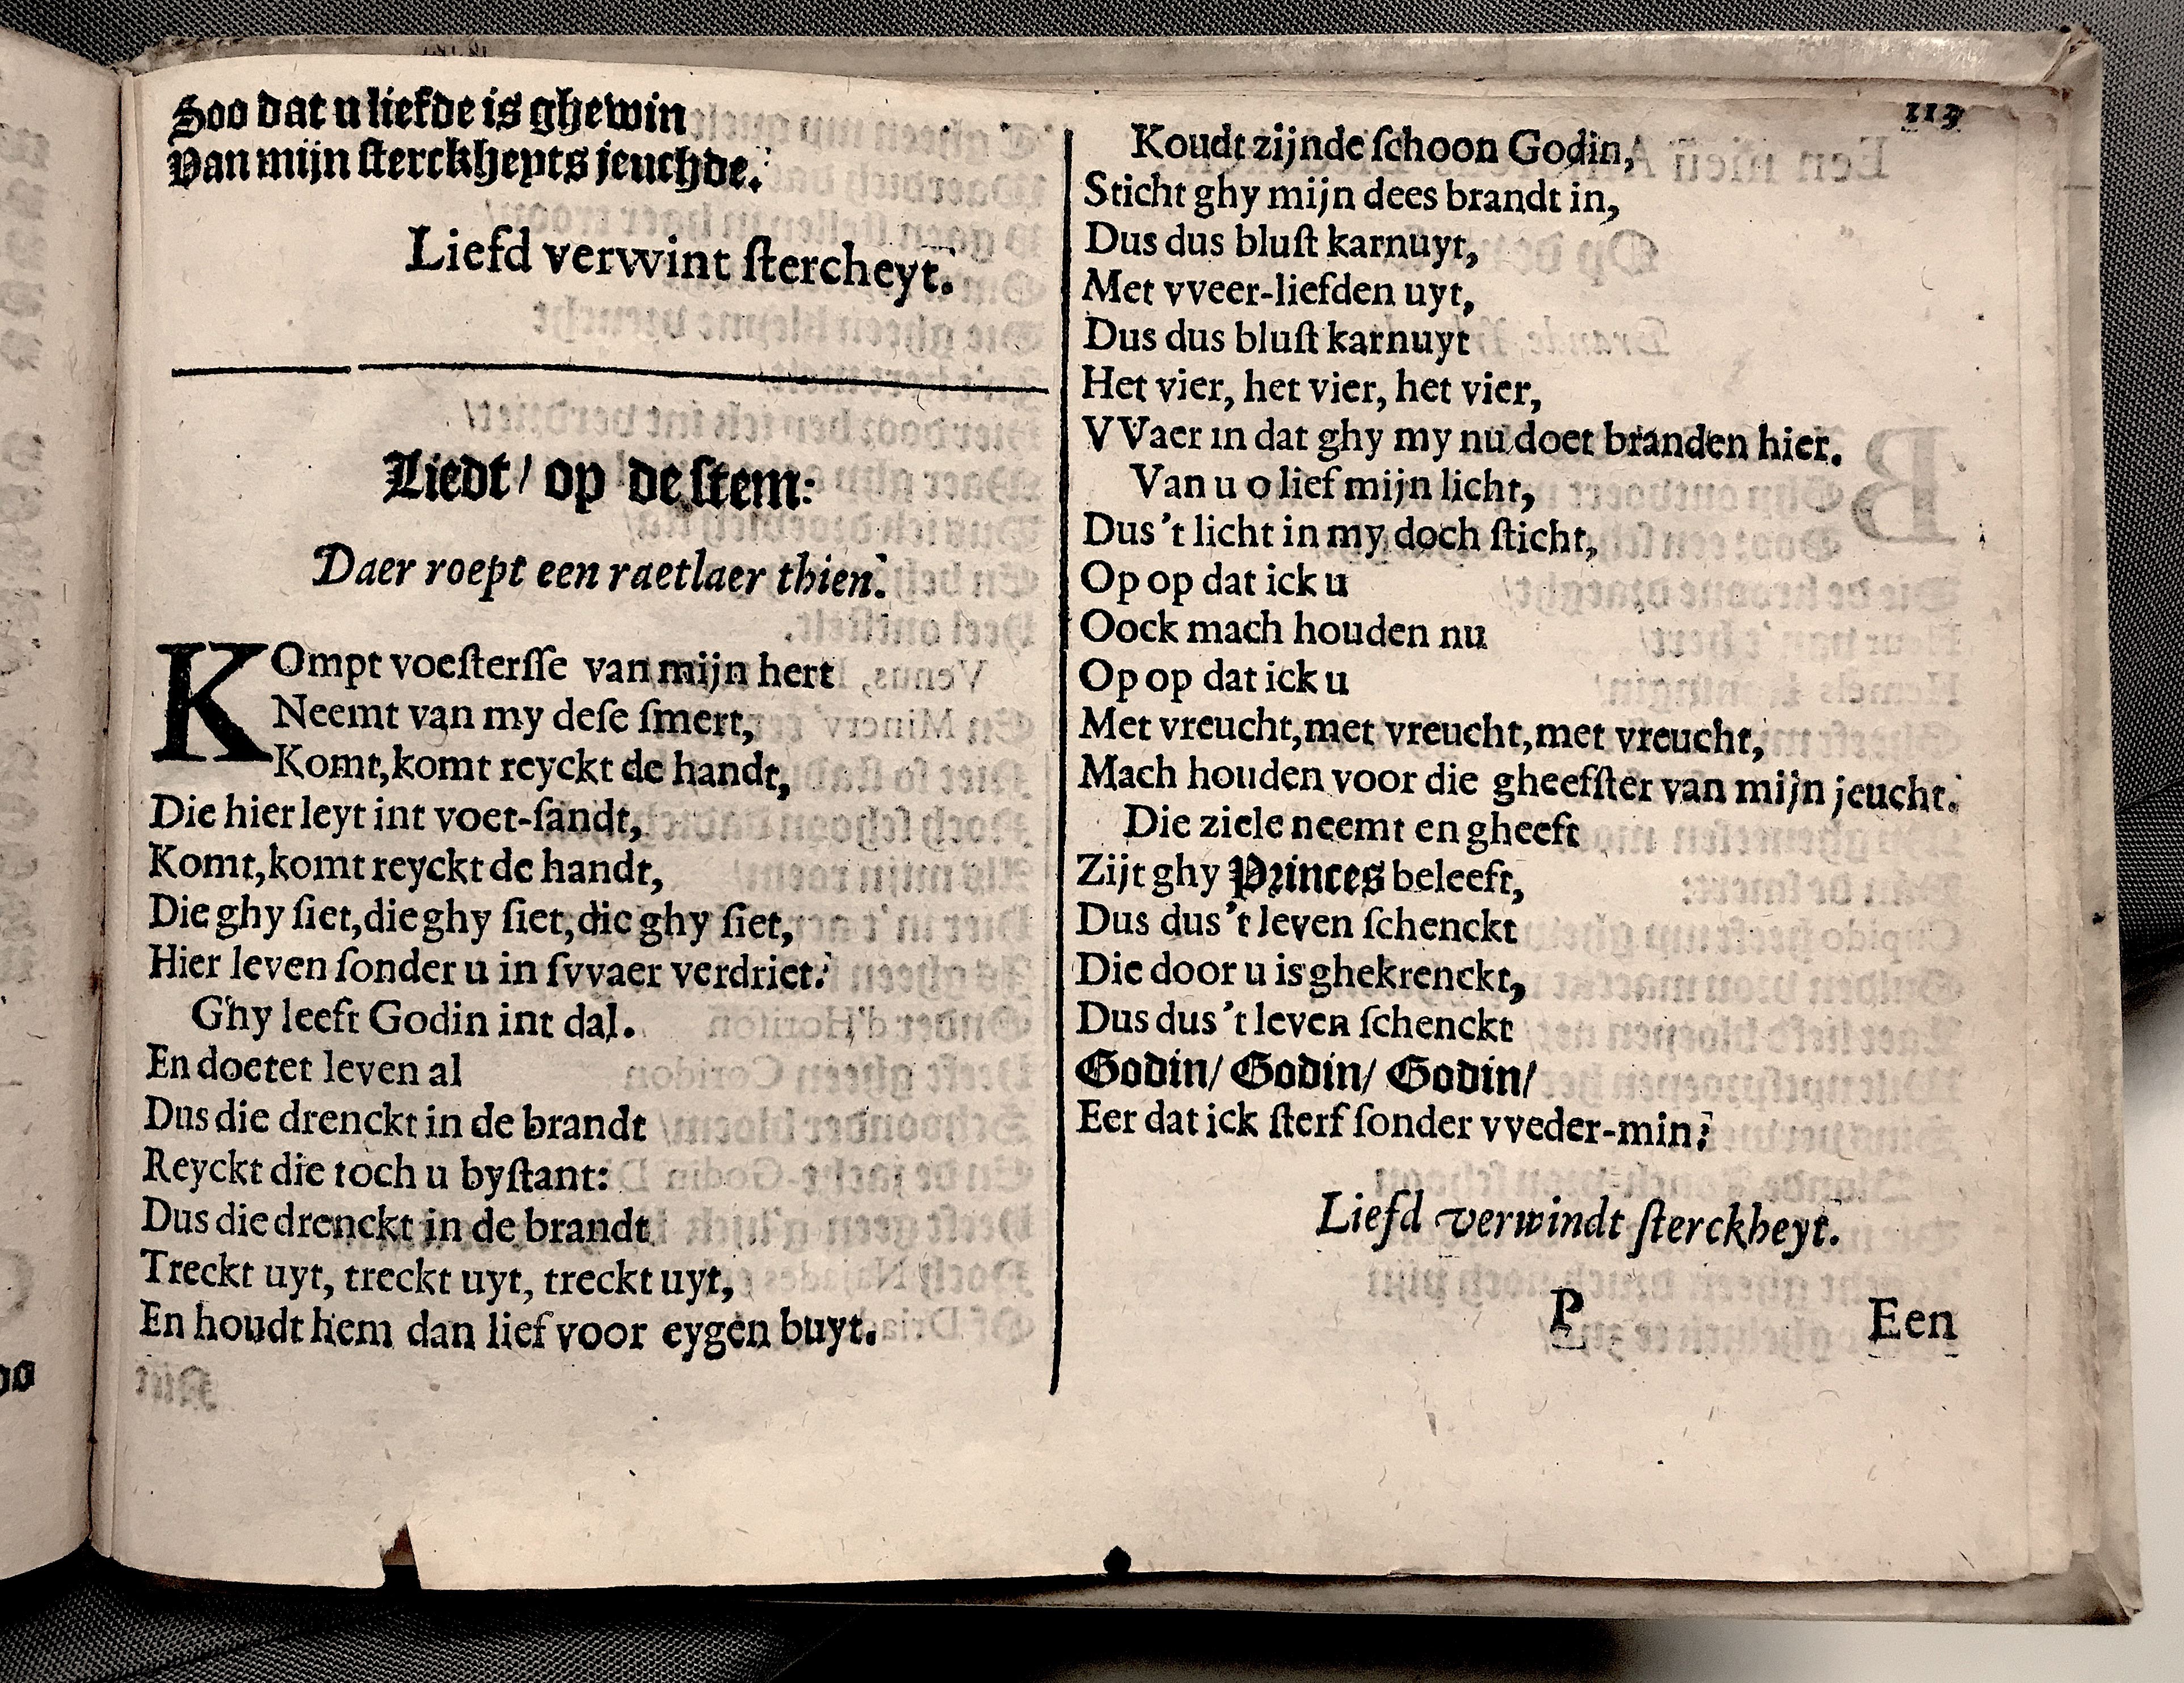 Soo dat u liefde is ghewin
Van mijn sterckheyts jeuchde.
Liefd verwint stercheyt.
Liedt/ op de stem:
Daer roept een raetlaer thien.
KOmpt voesterſſe van mijn hert
Neemt van my deſe ſmert,
Komt,komt reyckt de handt,
Die hier leyt int voet-ſandt,
Komt,komt reyckt de handt,
Die ghy ſiet,die ghy ſiet,die ghy ſiet,
Hier leven ſonder u in ſvvaer verdriet.
Ghy leeft Godin int dal.
En doetet leven al
Dus die drenckt in de brandt
Reyckt die toch u byſtant:
Dus die drenckt in de brandt
Treckt uyt, treckt uyt, treckt uyt,
En houdt hem dan lief voor eygen buyt.
113
Koudt zijnde ſchoon Godin,
Sticht ghy mijn dees brandt in,
Dus dus bluſt karnuyt,
Met vveer-liefden uyt,
Dus dus bluſt karnuyt
Het vier, het vier, het vier,
VVaer in dat ghy my nu doet branden hier.
Van u o lief mijn licht,
Dus 't licht in my doch ſticht,
Op op dat ick u
Oock mach houden nu
Op op dat ick u
Met vreucht,met vreucht,met vreucht,
Mach houden voor die gheefſter van mijn jeucht.
Die ziele neemt en gheeft
Zijt ghy Princes beleeft,
Dus dus 't leven ſchenckt
Die door u is ghekrenckt,
Dus dus 't leven ſchenckt
Godin/ Godin/ Godin/
Eer dat ick ſterf ſonder vveder-min.
Liefd verwindt ſterckheyt.
P Een